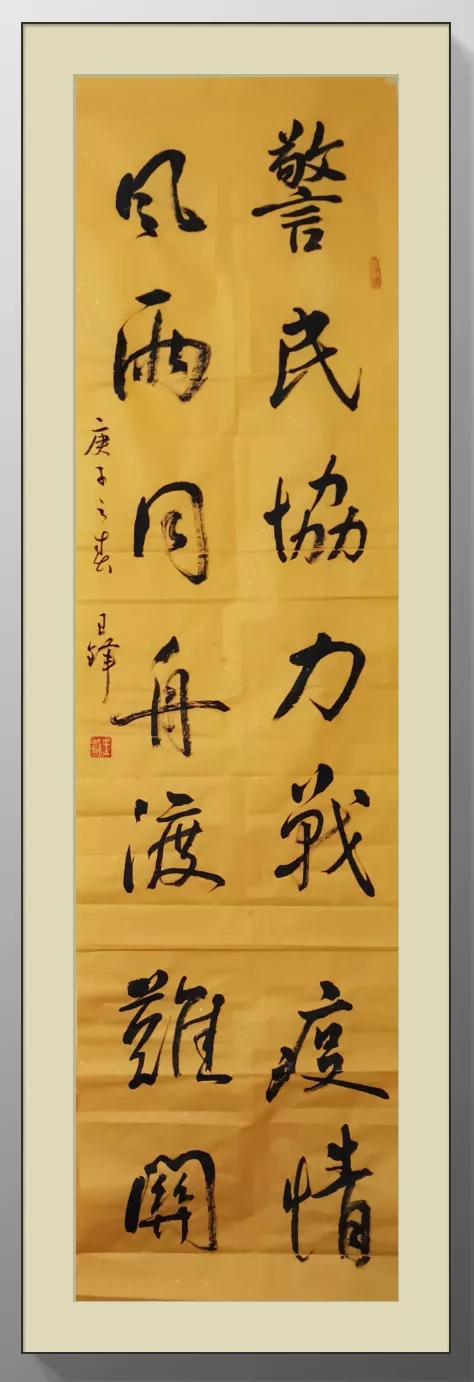 警民協力戰疫情
風雨同舟渡難關
庚子之春